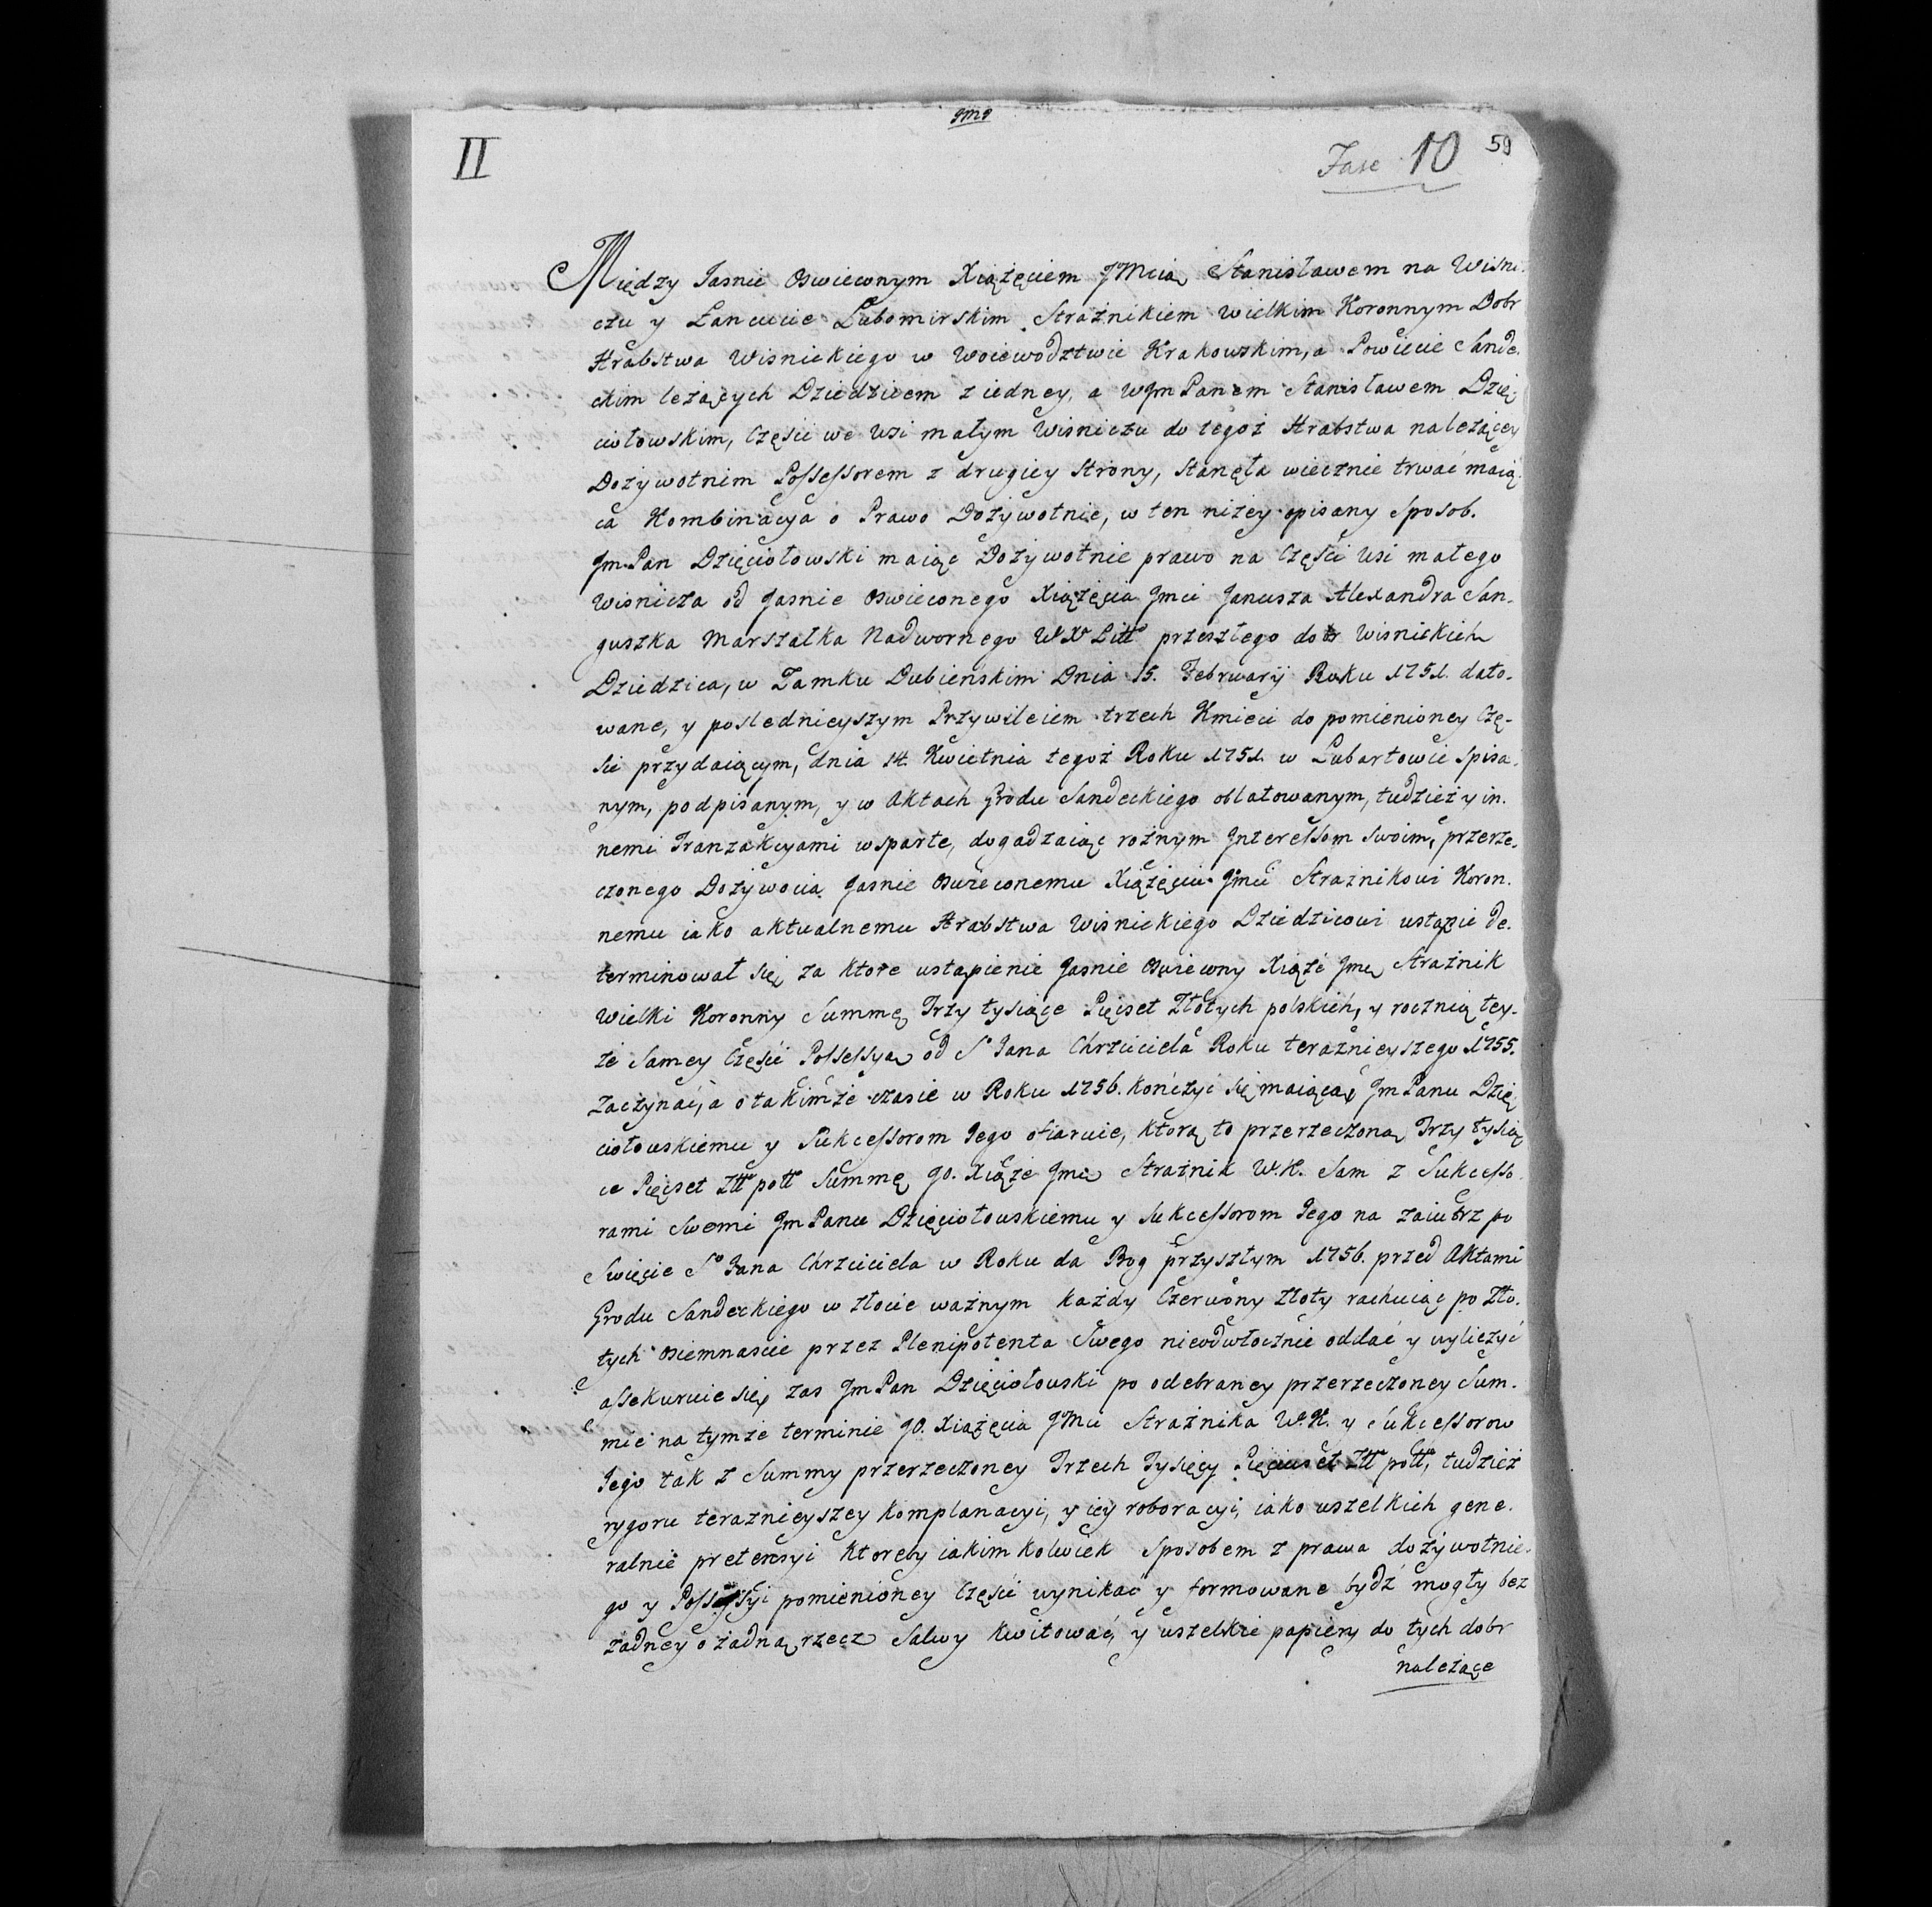 JMJ
II
Fasc 10
59
Między Jasnie Oswieconym Xiążęciem JMcią Stanisławem na Wisni-
czu y Łancucie Lubomirskim Strażnikiem Wielkim Koronnym Dobr
Hrabstwa Wisnickiego w Woiewodztwie Krakowskim, a Powiecie Sande-
ckim leżących Dziedzicem z iedney, a WJm Panem Stanisławem Dzię-
ciołowskim, Częsci we Wsi małym Wisniczu do tegoż Hrabstwa należącey
Dożywotnim Possessorem z drugiey strony, stanęła wiecznie trwać maią-
ca Kombinacya o Prawo Dożywotnie, w ten niżey opisany sposob.
Jm Pan Dzięciołowski maiąc Dożywotnie prawo na Częsci Wsi małego
Wisnicza od Jasnie Oswieconego Xiążęcia Jmci Janusza Alexandra San-
guszka Marszałka Nadwornego W. X. Litt. przeszłego dobr Wisnickich
Dziedzica, w Zamku Dubieńskim Dnia 15. Februarij Roku 1751. dato-
wane, y poslednieyszym Przywileiem trzech Kmieci do pomienioney Czę-
sci przydaiącym, dnia 14. Kwietnia tegoż Roku 1751. w Lubartowie spisa-
nym, podpisanym, y w Aktach Grodu Sandeckiego oblatowanym, tudzież y in-
nemi Tranzakcyami wsparte, dogadzaiąc rożnym Interessom swoim, przerze-
czonego Dożywocia Jasnie Oswieconemu Xiążęciu Jmci Strażnikowi Koron-
nemu iako aktualnemu Hrabstwa Wisnickiego Dziedzicowi ustąpic de-
terminował się, za ktore ustąpienie Jasnie Oswiecony Xiąże Jmć Strażnik
Wielki Koronny Summę Trzy tysiące Pięcset Złotych polskich, y roczną tey-
że samey Częsci Possessyą od S. Jana Chrzciciela Roku teraznieyszego 1755.
zaczynać, a o takimże czasie w Roku 1756. kończyć się maiącą, Jm Panu Dzię-
ciołowskiemu y Sukcessorom Jego ofiaruie, ktorą to przerzeczoną Trzy tysią-
ce Pięcset Złł poll Summę JO. Xiąże Jmć Strażnik W.K. Sam z Sukcesso-
rami Swemi Jm Panu Dzięciołowskiemu y Sukcessorom Jego na zaiutrz po
Swięcie S. Jana Chrzciciela w Roku da Bog przyszłym 1756. przed Aktami
Grodu Sandeckiego w złocie ważnym każdy Czerwony Złoty rachuiąc po Zło-
tych osiemnascie przez Plenipotenta Swego nieodwłocznie oddać y wyliczyć
assekuruie się, zas Jm Pan Dzięciołowski po odebraney przerzeczoney Sum-
mie na tymże terminie JO. Xiążęcia JMci Strażnika W.K. y Sukcessorow
Jego tak z Summy przerzeczoney Trzech Tysięcy Pięciuset Złł poll, tudzież
rygoru teraznieyszey komplanacyi, y iey roboracyi, iako wszelkich gene-
ralnie pretensyi ktoreby iakimkolwiek sposobem z prawa dożywotnie-
go y Possessyi pomienioney Częsci wynikać y formowane bydź mogły bez
żadney o żadną rzecz salwy kwitować, y wszelkie papiery do tych dobr
należące